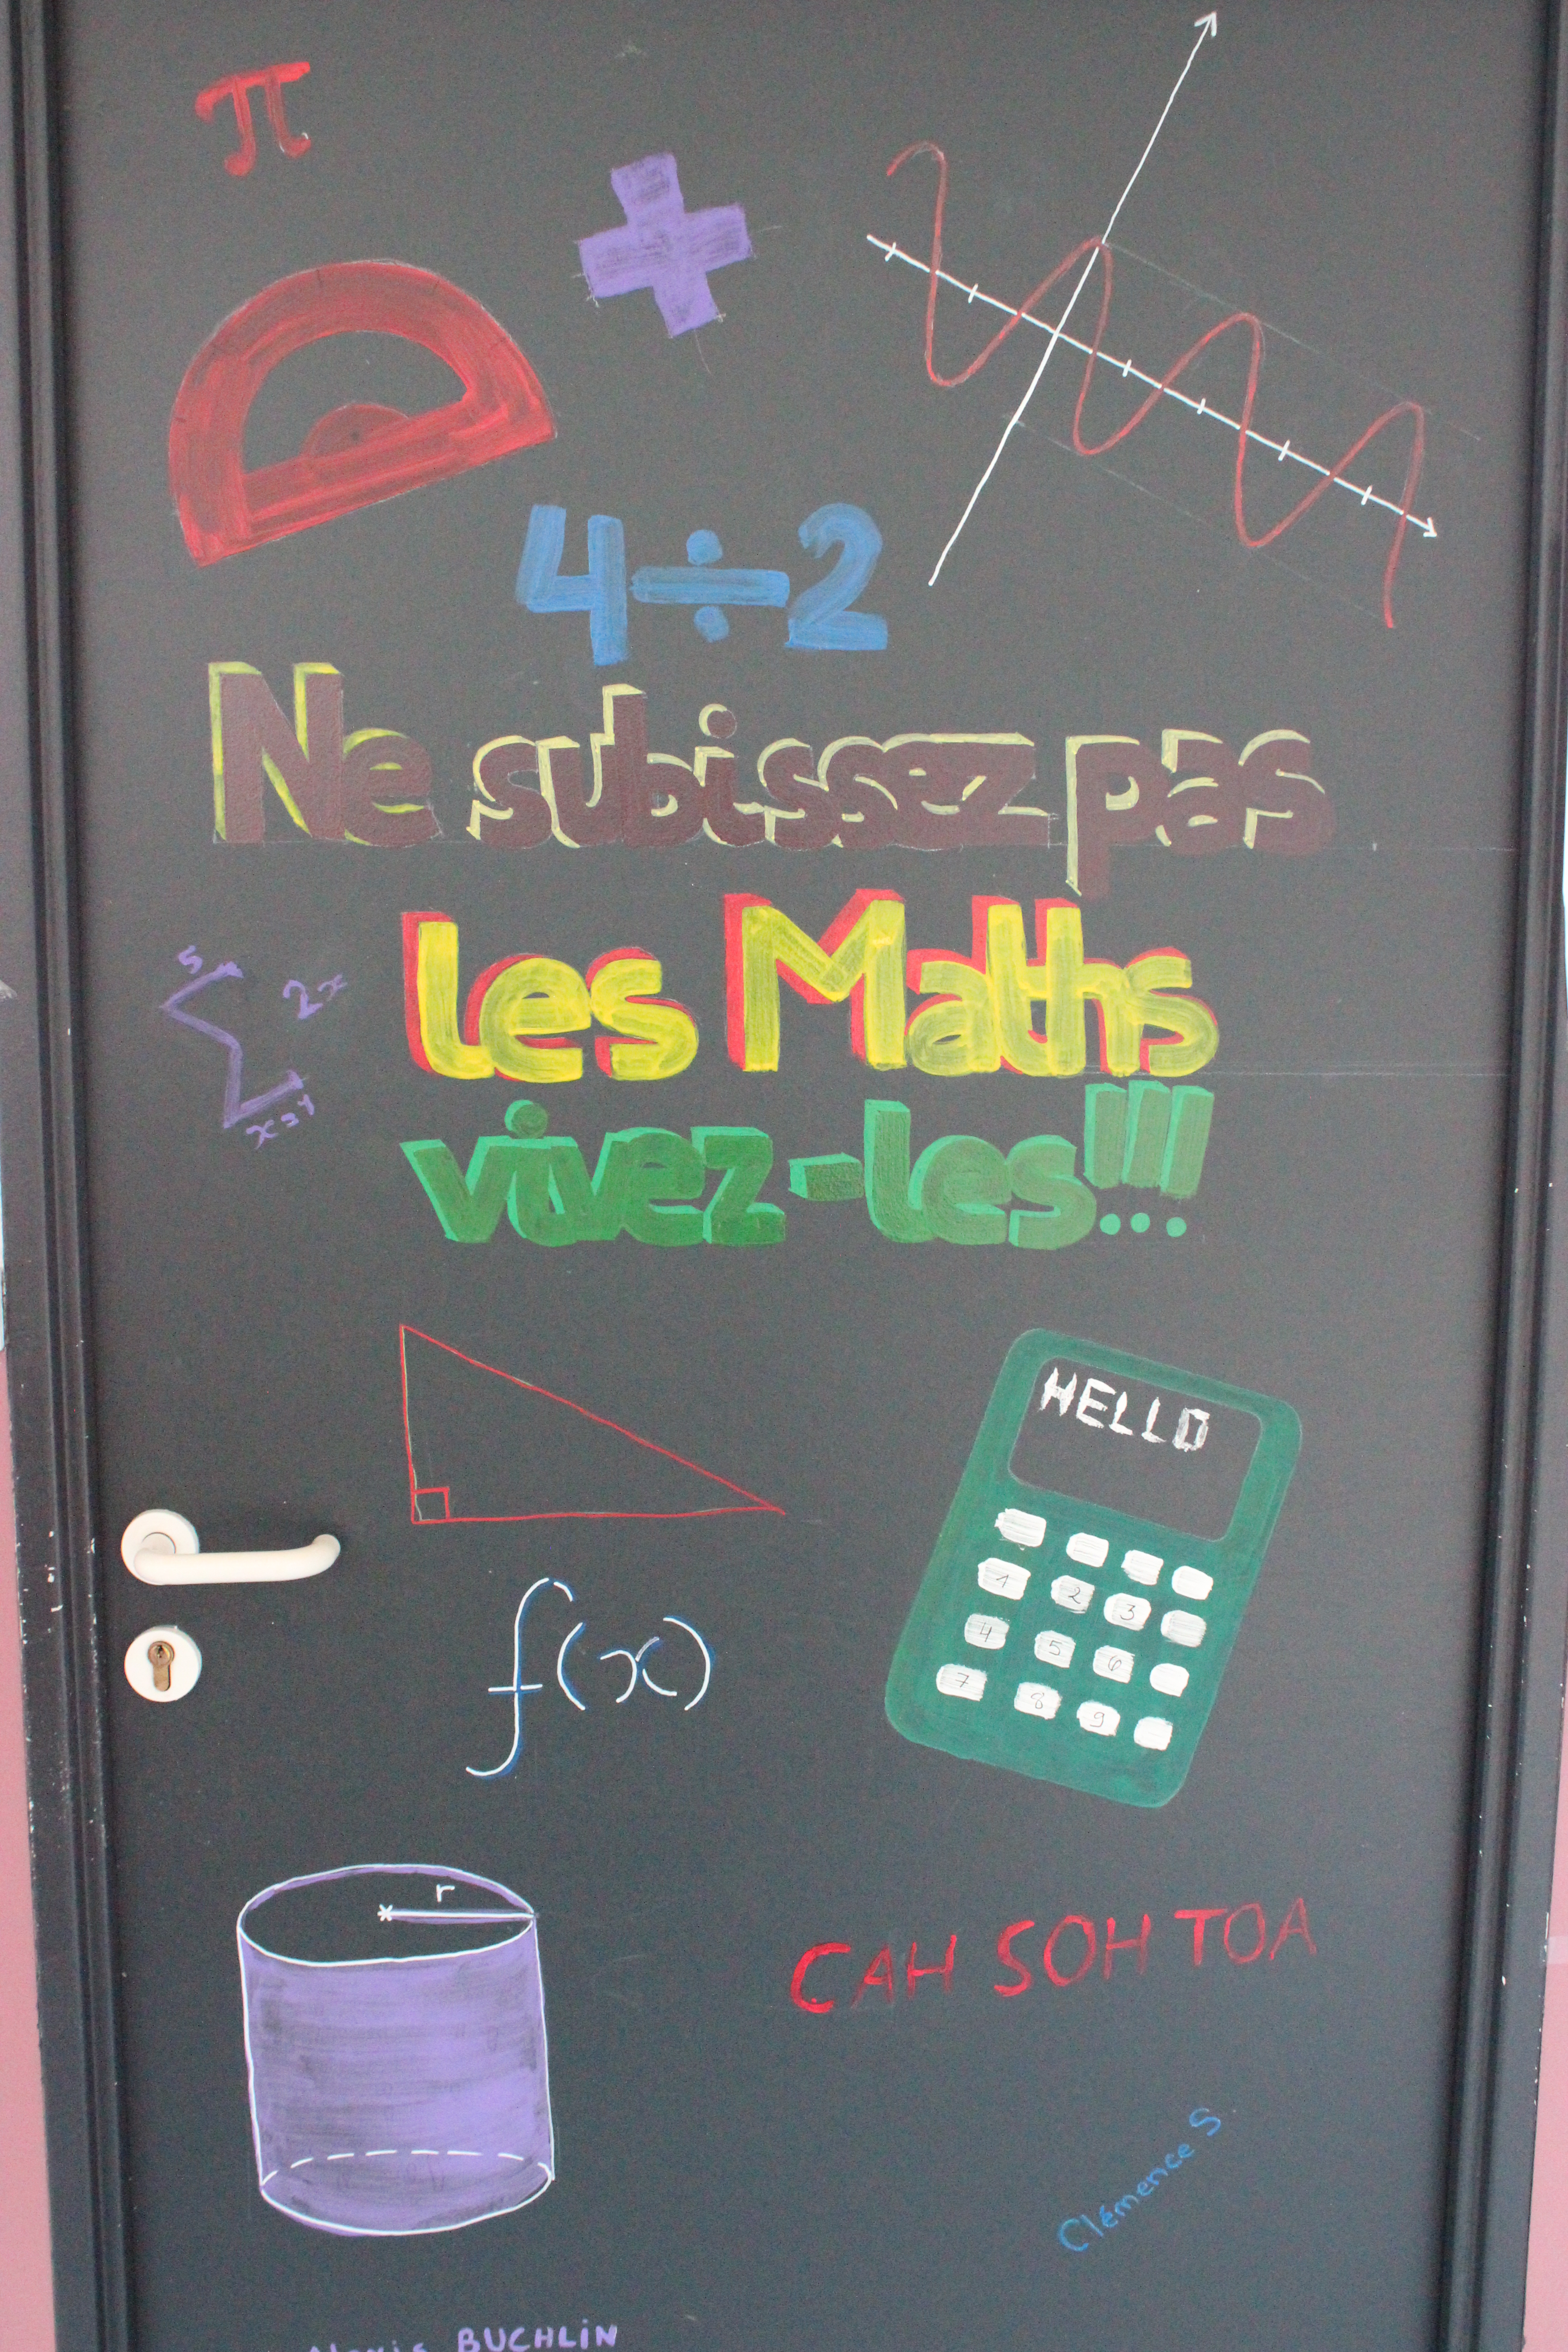 π
4÷2
Ne subissez pas
les Maths
5
2x
Σ
vivez-les!!!
HELLO
1 2 3
4 5 6
7 8 9
f(x)
r
CAH SOH TOA
Clémence S
BUCHLIN